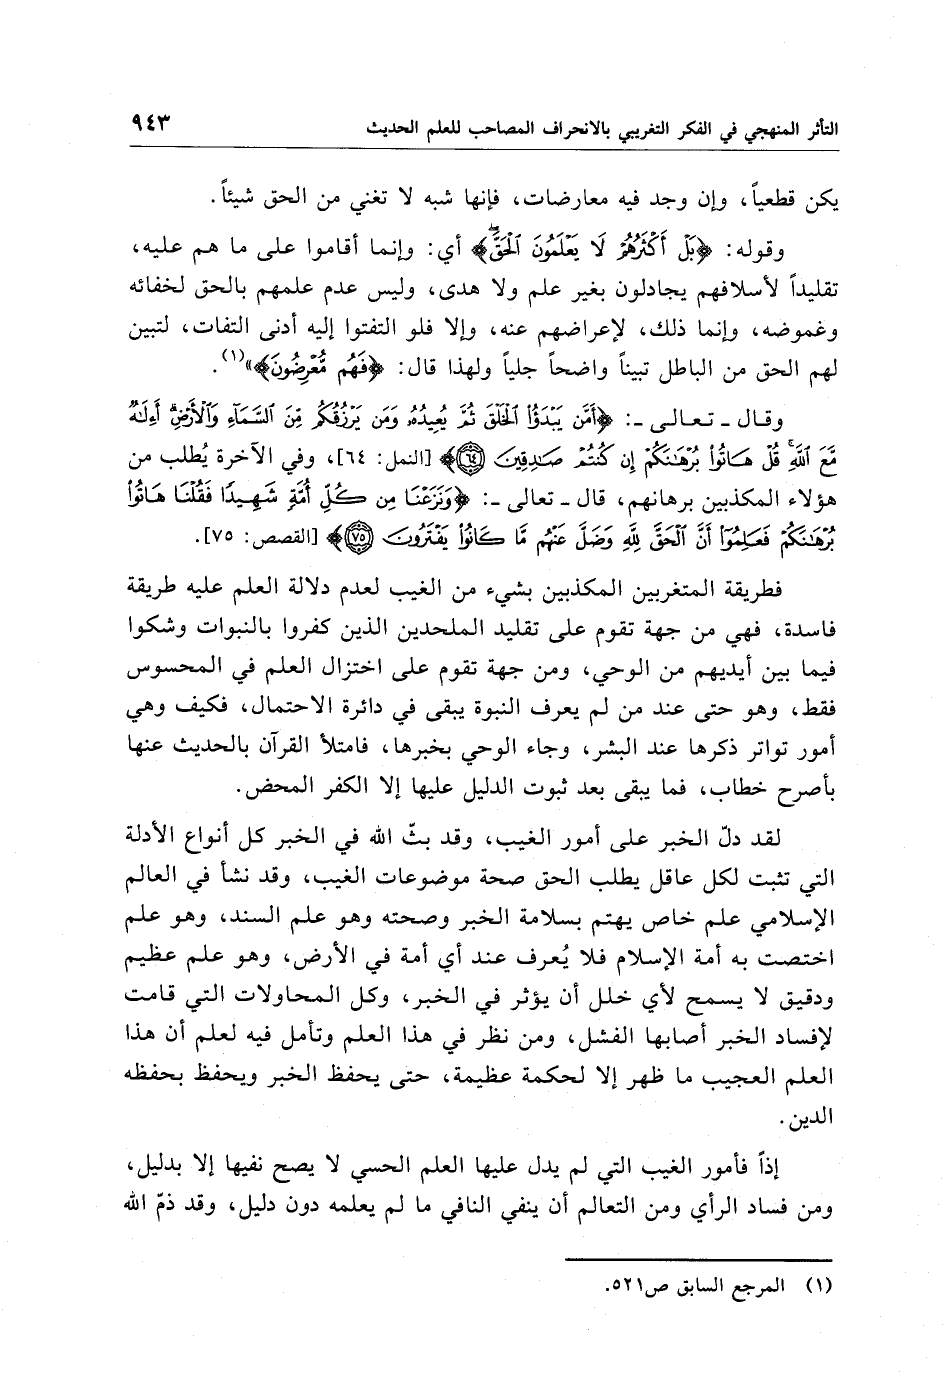 التأثر المنهجي في الفكر التغريبي بالانحراف المصاحب للعلم الحديث ٩٤٣
يكن قطعياً، وإن وجد فيه معارضات، فإنها شبه لا تغني من الحق شيئاً.
وقوله: ﴿بَلْ أَكْثَرُهُمْ لَا يَعْلَمُونَ ٱلْحَقَّۖ﴾ أي: وإنما أقاموا على ما هم عليه،
تقليداً لأسلافهم يجادلون بغير علم ولا هدى، وليس عدم علمهم بالحق لخفائه
وغموضه، وإنما ذلك، لإعراضهم عنه، وإلا فلو التفتوا إليه أدنى التفات، لتبين
لهم الحق من الباطل تبيناً واضحاً جلياً ولهذا قال: ﴿فَهُم مُّعْرِضُونَ﴾»(١).
وقال ـ تعالى ـ: ﴿أَمَّن يَبْدَؤُا ٱلْخَلْقَ ثُمَّ يُعِيدُهُۥ وَمَن يَرْزُقُكُم مِّنَ ٱلسَّمَآءِ وَٱلْأَرْضِۗ أَءِلَٰهٌ
مَّعَ ٱللَّهِۚ قُلْ هَاتُوا۟ بُرْهَٰنَكُمْ إِن كُنتُمْ صَٰدِقِينَ ۝٦٤﴾ [النمل: ٦٤]، وفي الآخرة يُطلب من
هؤلاء المكذبين برهانهم، قال ـ تعالى ـ: ﴿وَنَزَعْنَا مِن كُلِّ أُمَّةٍ شَهِيدًا فَقُلْنَا هَاتُوا۟
بُرْهَٰنَكُمْ فَعَلِمُوٓا۟ أَنَّ ٱلْحَقَّ لِلَّهِ وَضَلَّ عَنْهُم مَّا كَانُوا۟ يَفْتَرُونَ ۝٧٥﴾ [القصص: ٧٥].
فطريقة المتغربين المكذبين بشيء من الغيب لعدم دلالة العلم عليه طريقة
فاسدة، فهي من جهة تقوم على تقليد الملحدين الذين كفروا بالنبوات وشكوا
فيما بين أيديهم من الوحي، ومن جهة تقوم على اختزال العلم في المحسوس
فقط، وهو حتى عند من لم يعرف النبوة يبقى في دائرة الاحتمال، فكيف وهي
أمور تواتر ذكرها عند البشر، وجاء الوحي بخبرها، فامتلأ القرآن بالحديث عنها
بأصرح خطاب، فما يبقى بعد ثبوت الدليل عليها إلا الكفر المحض.
لقد دلّ الخبر على أمور الغيب، وقد بثّ الله في الخبر كل أنواع الأدلة
التي تثبت لكل عاقل يطلب الحق صحة موضوعات الغيب، وقد نشأ في العالم
الإسلامي علم خاص يهتم بسلامة الخبر وصحته وهو علم السند، وهو علم
اختصت به أمة الإسلام فلا يُعرف عند أي أمة في الأرض، وهو علم عظيم
ودقيق لا يسمح لأي خلل أن يؤثر في الخبر، وكل المحاولات التي قامت
لإفساد الخبر أصابها الفشل، ومن نظر في هذا العلم وتأمل فيه لعلم أن هذا
العلم العجيب ما ظهر إلا لحكمة عظيمة، حتى يحفظ الخبر ويحفظ بحفظه
الدين.
إذاً فأمور الغيب التي لم يدل عليها العلم الحسي لا يصح نفيها إلا بدليل،
ومن فساد الرأي ومن التعالم أن ينفي النافي ما لم يعلمه دون دليل، وقد ذمّ الله
(١) المرجع السابق ص٥٢١.